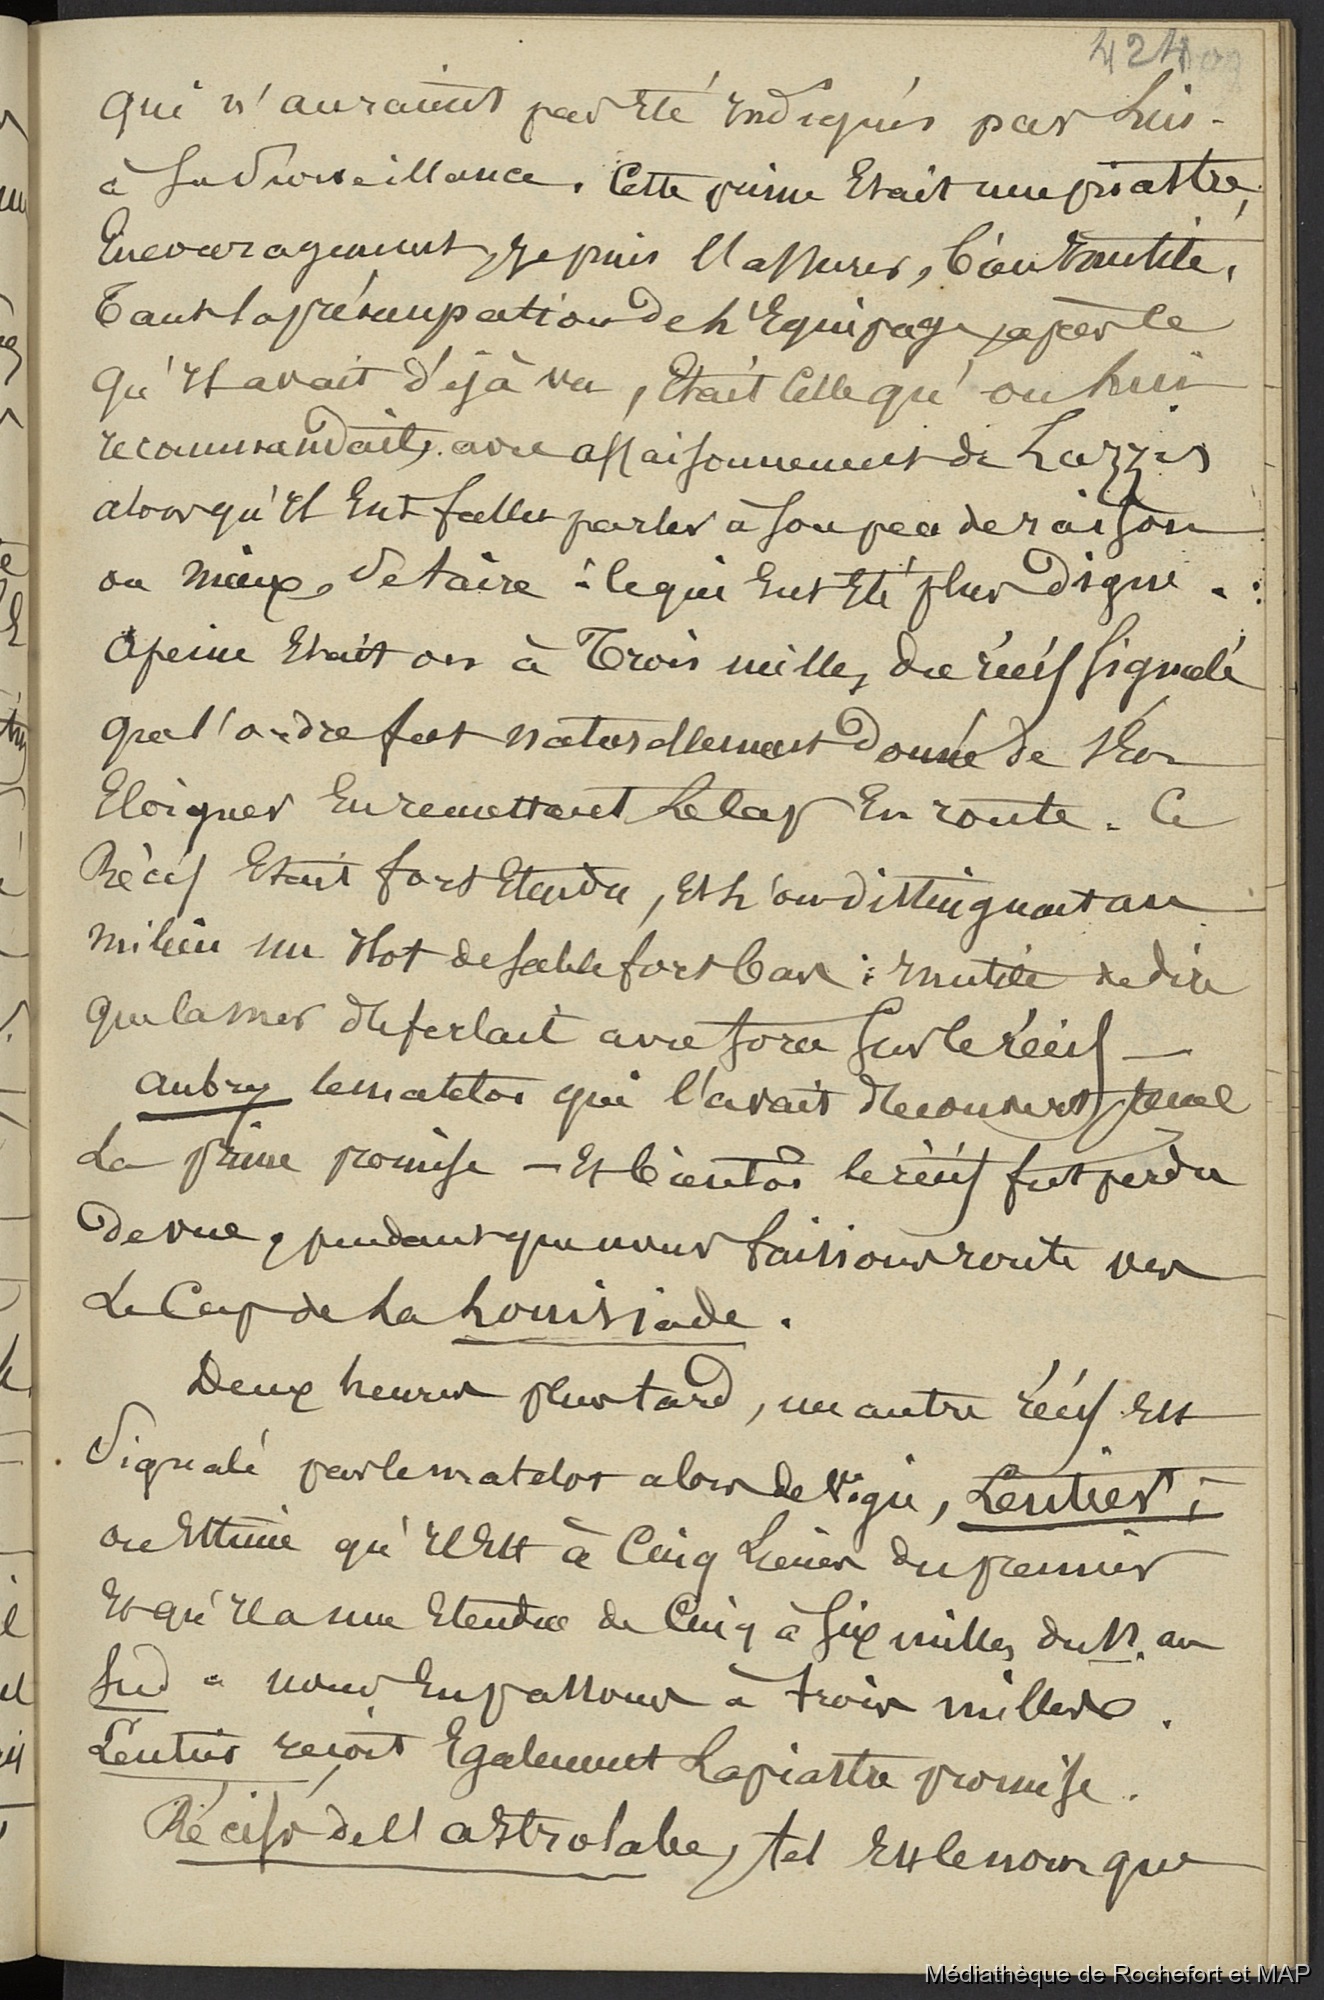 424
qui n'auraient pas été indiqués par lui -
à sa surveillance. Cette prime était une piastre,
Encouragement, je puis l'assurer, bien inutile,
Tant la préoccupation de l'Equipage, après ce
qu'il avait déjà vu, était celle qu'on lui
recommandait, avec assaisonnement de Lazzis
alors qu'il eut fallu parler à son peu de raison
ou mieux, se taire : ce qui eut été plus digne.
à peine était on à Trois milles, du récif signalé
que l'ordre fut naturellement donné de s'en
Eloigner en remettant le Cap en route. Ce
Récif était fort étendu, et l'on distinguait au
milieu un Ilot de sable fort bas : inutile de dire
que la mer déferlait avec force sur le récif —
Aubry le matelot qui l'avait découvert, reçut
La prime promise — Et bientôt le récif fut perdu
De vue, pendant que nous faisions route vers
Le Cap de La Louisiade.
Deux heures plus tard, un autre récif est
Signalé par le matelot alors de vigie, Lentier ;
on Estime qu'il est à Cinq Lieues du premier
Et qu'il a une étendue de Cinq à Six milles, du N. au
Sud - nous en passons à trois milles.
Lentier reçoit également La piastre promise.
Récifs de l'Astrolabe, tel est le nom que
Médiathèque de Rochefort et MAP